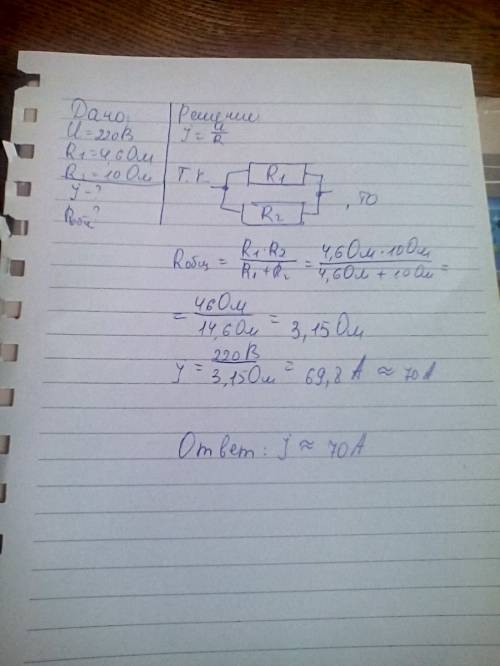 Дано:
U = 220В
R1 = 4,6Ом
R1 = 10Ом
J - ?
Rобщ ?
Решение
J = U/R
Т.к.
R1
R2
, то
Rобщ = R1·R2/R1+R2 = 4,6Ом·10Ом/4,6Ом + 10Ом =
= 46Ом/14,6Ом = 3,15Ом
J = 220В/3,15Ом = 69,8 А ≈ 70А
Ответ: J ≈ 70А